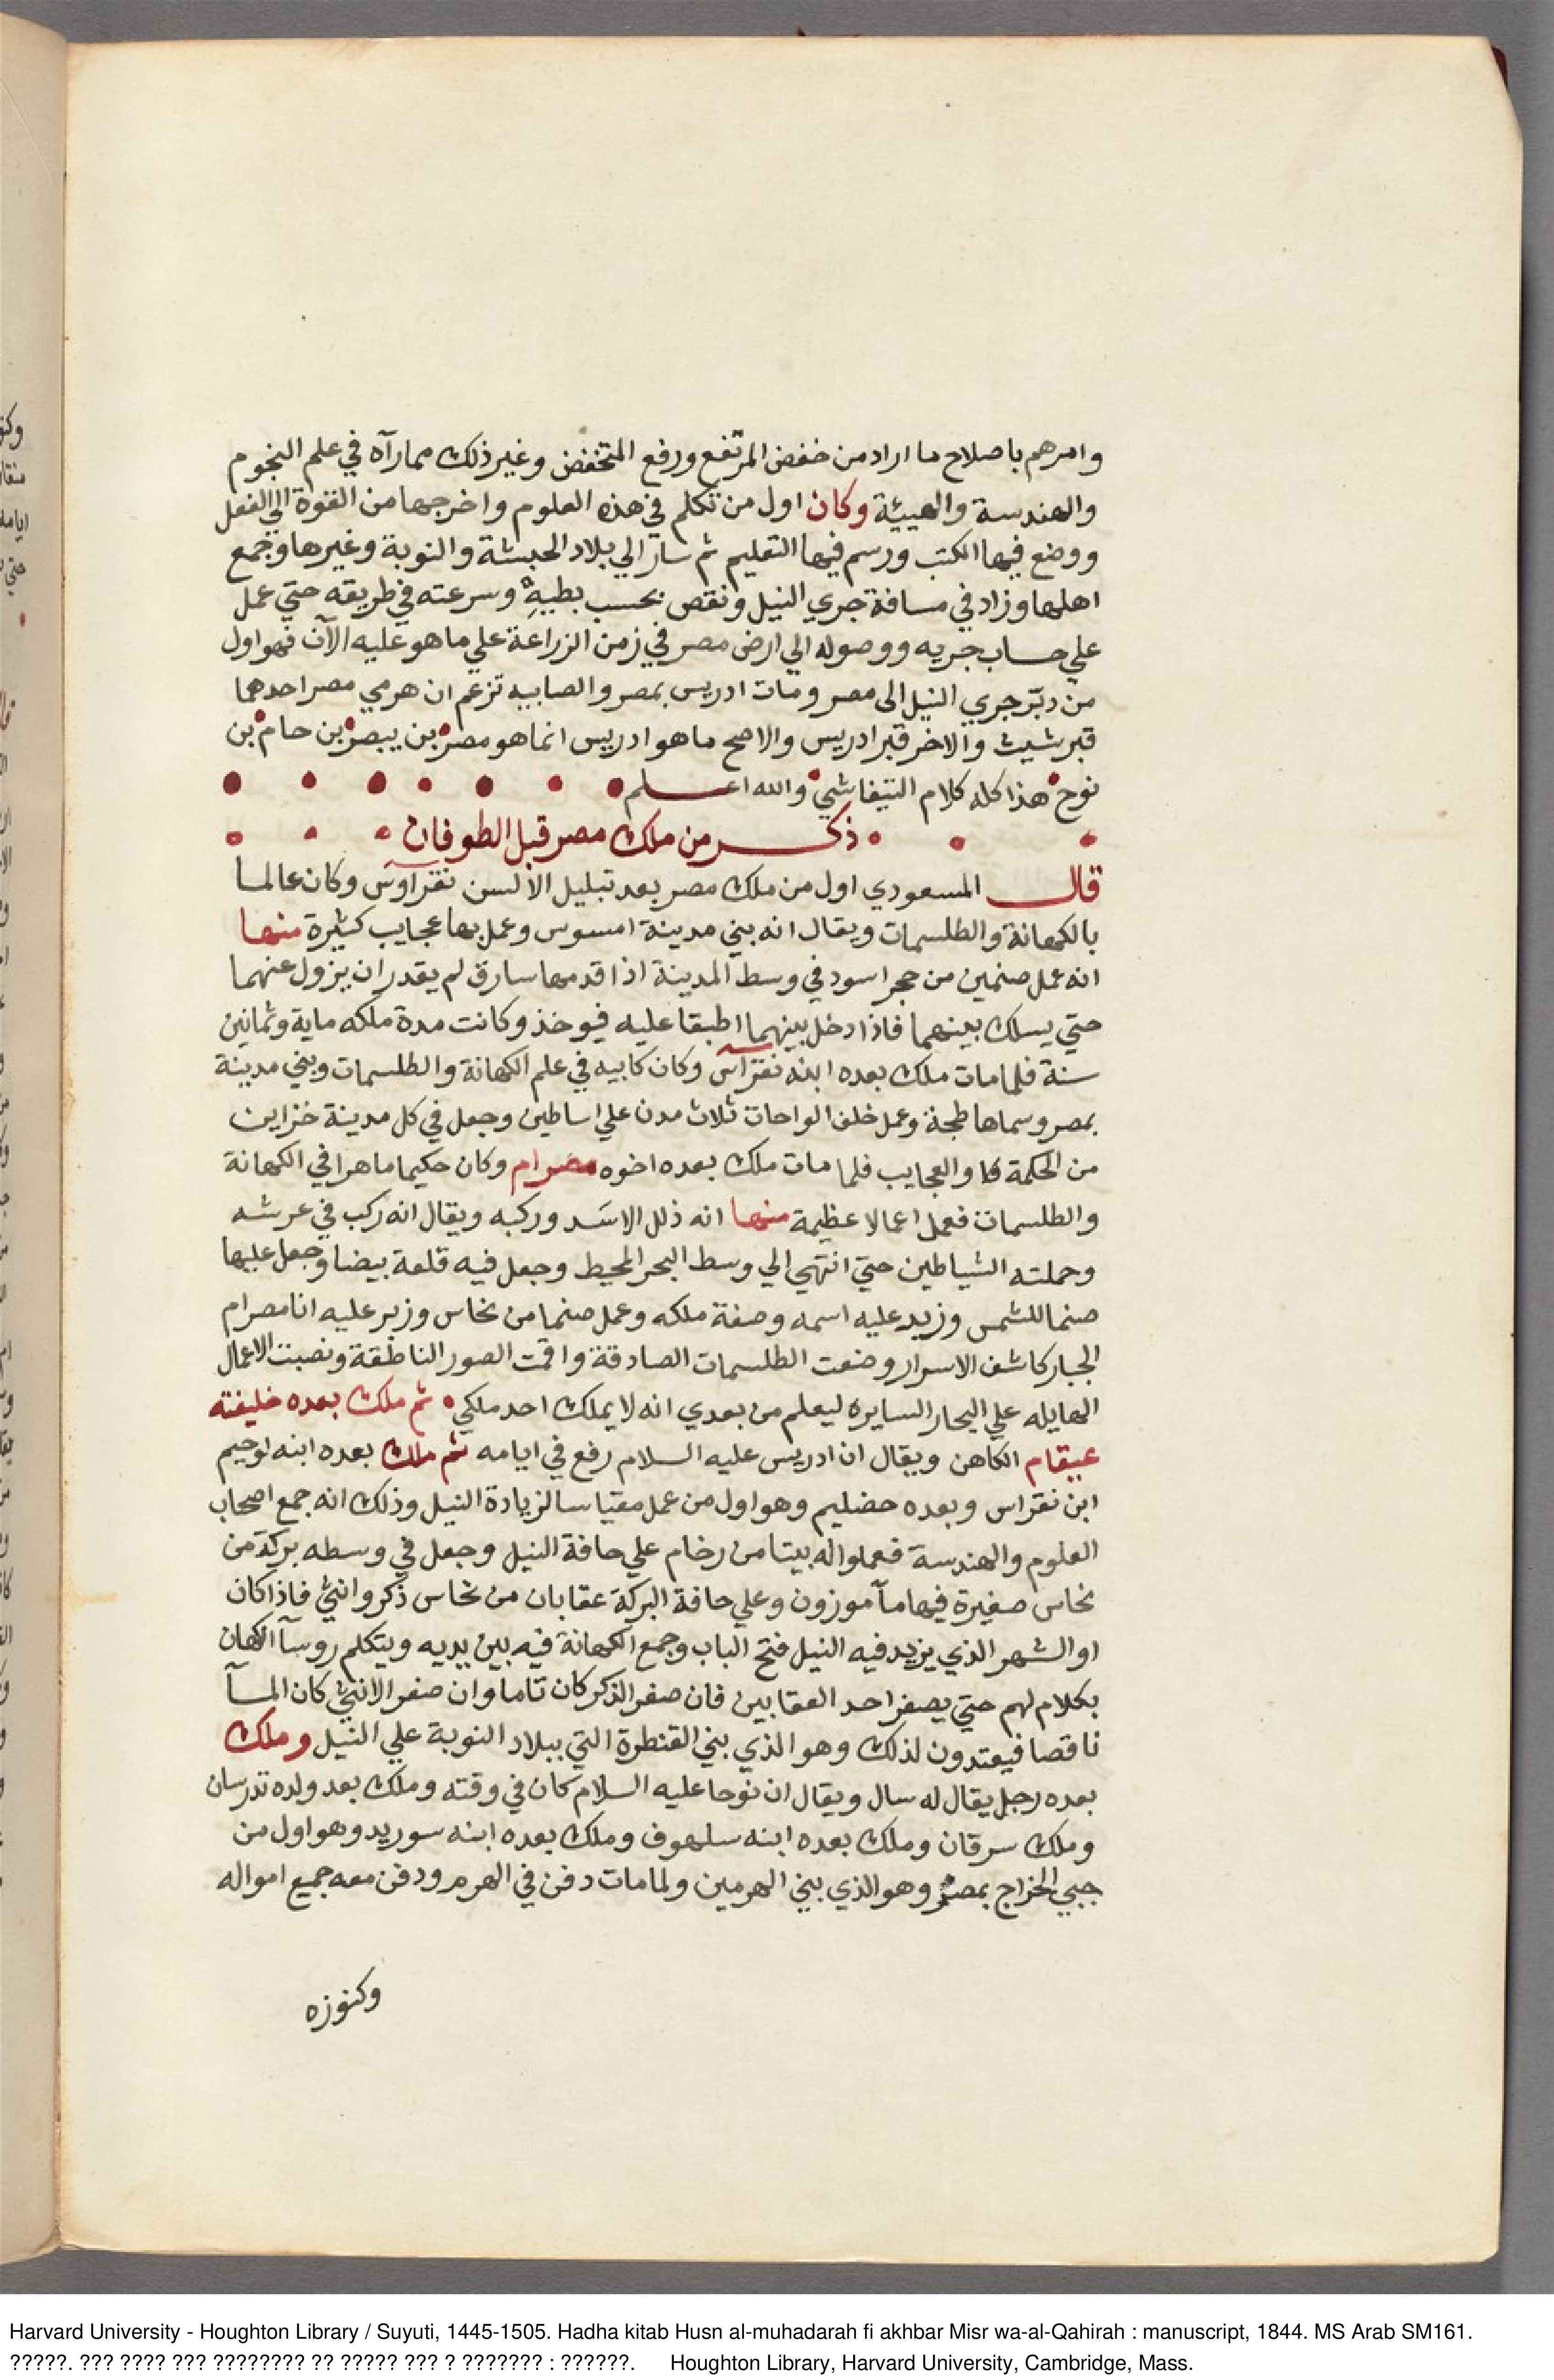 وامرهم باصلاح ما اراد من خفض المرتفع ورفع المنخفض وغير ذلك مما رآه في علم النجوم
والهندسة والهيئة وكان اول من تكلم في هذه العلوم واخرجها من القوة الي الفعل
ووضع فيها الكتب ورسم فيها التعليم ثم سار الي بلاد الحبشة والنوبة وغيرها وجمع
اهلها وزاد في مسافة جري النيل ونقص بحسب بطيه وسرعته في طريقه حتي عمل
علي حساب جريه ووصوله الي ارض مصر في زمن الزراعة علي ما هو عليه الآن فهو اول
من دبّر جري النيل الى مصر ومات ادريس بمصر والصابيه تزعم ان هرمي مصر احدهما
قبر شيث والاخر قبر ادريس والاصح ما هو ادريس انما هو مصر بن يبصر بن حام بن
نوح هذا كله كلام التيفاشي والله اعلم
ذكر من ملك مصر قبل الطوفان
قال المسعودي اول من ملك مصر بعد تبليل الالسن نقرآوس وكان عالما
بالكهانة والطلسمات ويقال انه بني مدينة امسوس وعمل بها عجايب كثيرة منها
انه عمل صنمين من حجر اسود في وسط المدينة اذا قدمها سارق لم يقدر ان يزول عنهما
حتي يسلك بينهما فاذا دخل بينهما اطبقا عليه فيوخذ وكانت مدة ملكه ماية وثمانين
سنة فلما مات ملك بعده ابنه نقراس وكان كابيه في علم الكهانة والطلسمات وبني مدينة
بمصر وسماها طجة وعمل خلف الواحات ثلاث مدن علي اساطين وجعل في كل مدينة خزاين
من الحكمة والعجايب فلما مات ملك بعده اخوه مصرام وكان حكيما ماهرا في الكهانة
والطلسمات فعمل اعمالا عظيمة منها انه ذلل الاسد وركبه ويقال انه ركب في عرشه
وحملته الشياطين حتي انتهي الي وسط البحر المحيط وجعل فيه قلعة بيضا وجعل عليها
صنما للشمس وزيد عليه اسمه وصفة ملكه وعمل صنما من نحاس وزبر عليه انا مصرام
الجبار كاشف الاسرار وضعت الطلسمات الصادقة واقمت الصور الناطقة ونصبت الاعمال
الهايله علي البحار السايره ليعلم من بعدي انه لا يملك احد ملكي ثم ملك بعده خليفته
عيقام الكاهن ويقال ان ادريس عليه السلام رفع في ايامه ثم ملك بعده ابنه لوجيم
ابن نقراس وبعده حضليم وهو اول من عمل مقياسا لزيادة النيل وذلك انه جمع اصحاب
العلوم والهندسة فعملوا له بيتا من رخام علي حافة النيل وجعل في وسطه بركة من
نحاس صغيرة فيها مآ موزون وعلي حافة البركة عقابان من نحاس ذكر وانثي فاذا كان
او الشهر الذي يزيد فيه النيل فتح الباب وجمع الكهانة فيه بين يديه ويتكلم روسآ الكهان
بكلام لهم حتي يصفر احد العقابين فان صفر الذكر كان تاما وان صفر الانثي كان المآ
ناقصا فيعتدون لذلك وهو الذي بني القنطرة التي ببلاد النوبة علي النيل وملك
بعده رجل يقال له سال ويقال ان نوحا عليه السلام كان في وقته وملك بعد ولده تدرسان
وملك سرقان وملك بعده ابنه سلهوف وملك بعده ابنه سوريد وهو اول من
جبي الخراج بمصر وهو الذي بني الهرمين ولما مات دفن في الهرم ودفن معه جميع امواله
وكنوزه
Harvard University - Houghton Library / Suyuti, 1445-1505. Hadha kitab Husn al-muhadarah fi akhbar Misr wa-al-Qahirah : manuscript, 1844. MS Arab SM161.
?????. ??? ???? ??? ???????? ?? ????? ??? ? ??????? : ??????. Houghton Library, Harvard University, Cambridge, Mass.